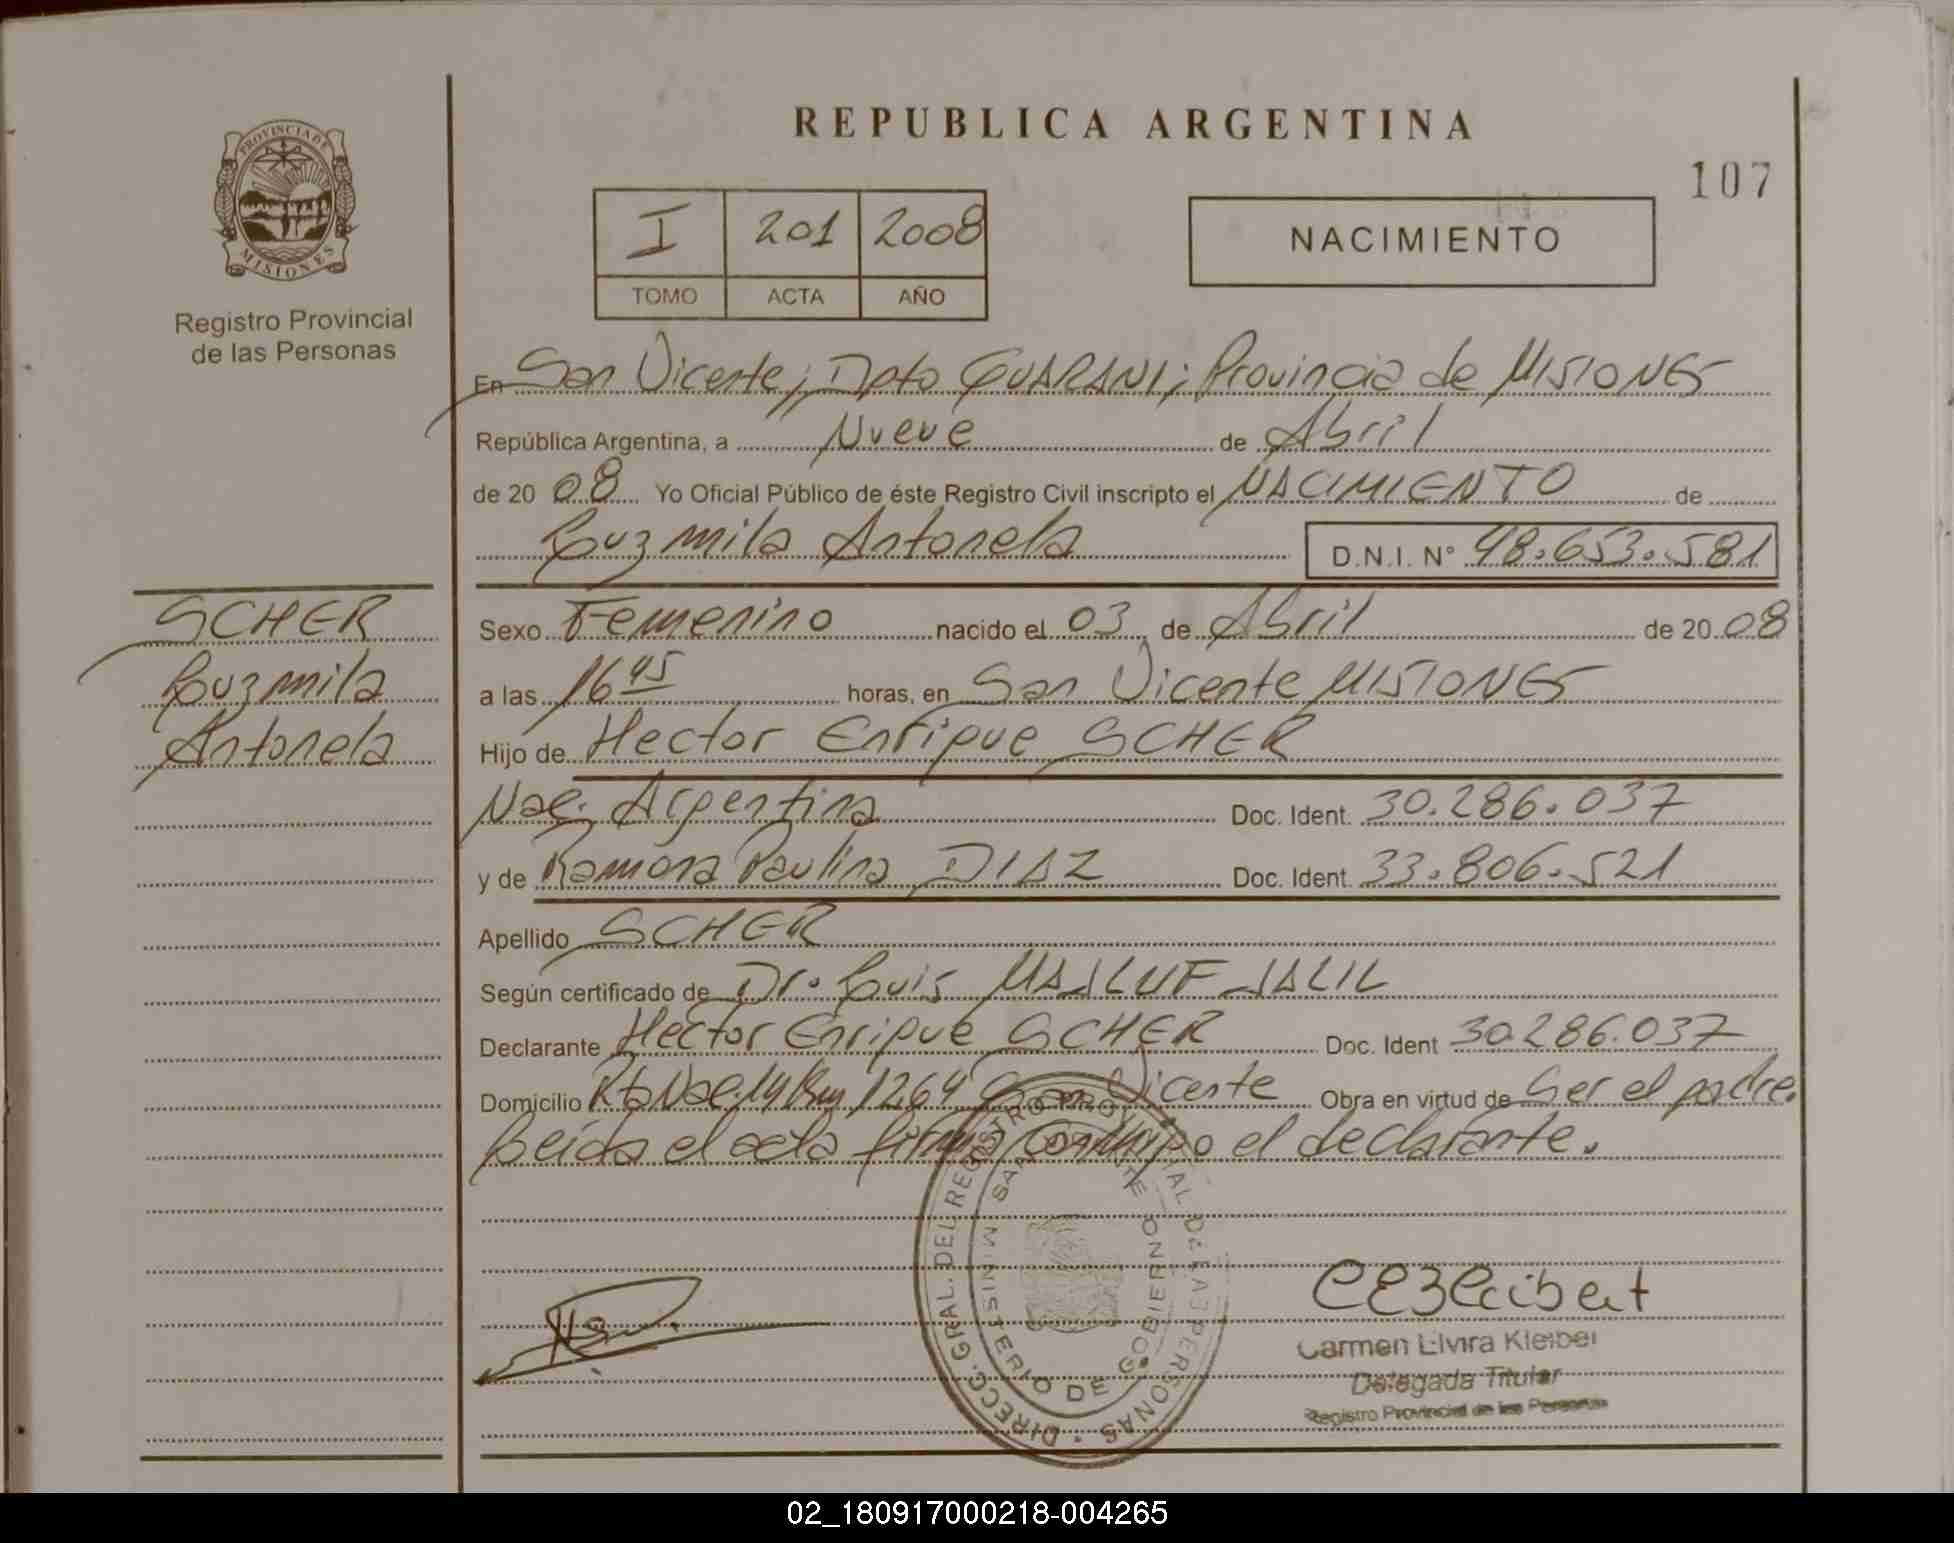 REPUBLICA ARGENTINA
107
PROVINCIA DE
MISIONES
Registro Provincial
de las Personas
I 201 2008
TOMO ACTA AÑO
NACIMIENTO
En San Vicente; Dpto GUARANI; Provincia de MISIONES
República Argentina, a Nueve de Abril
de 20 08 Yo Oficial Público de éste Registro Civil inscripto el NACIMIENTO de
Luzmila Antonela D.N.I. N° 48.653.581
SCHER
Luzmila
Antonela
Sexo Femenino nacido el 03 de Abril de 20 08
a las 16 45 horas, en San Vicente MISIONES
Hijo de Hector Enrique SCHER
Nac. Argentina Doc. Ident. 30.286.037
y de Ramona Paulina DIAZ Doc. Ident. 33.806.521
Apellido SCHER
Según certificado de Dr. Luis MAALUF JALIL
Declarante Hector Enrique SCHER Doc. Ident 30.286.037
Domicilio Rta Nac. 14 Km 1264 San Vicente Obra en virtud de Ser el padre.
Leida el acta firma conmigo el declarante.
DIRECC. GRAL. DEL REGISTRO PROVINCIAL DE LAS PERSONAS
MINISTERIO DE GOBIERNO
SAN VICENTE
Carmen Elvira Kleiber
Delegada Titular
Registro Provincial de las Personas
02_180917000218-004265